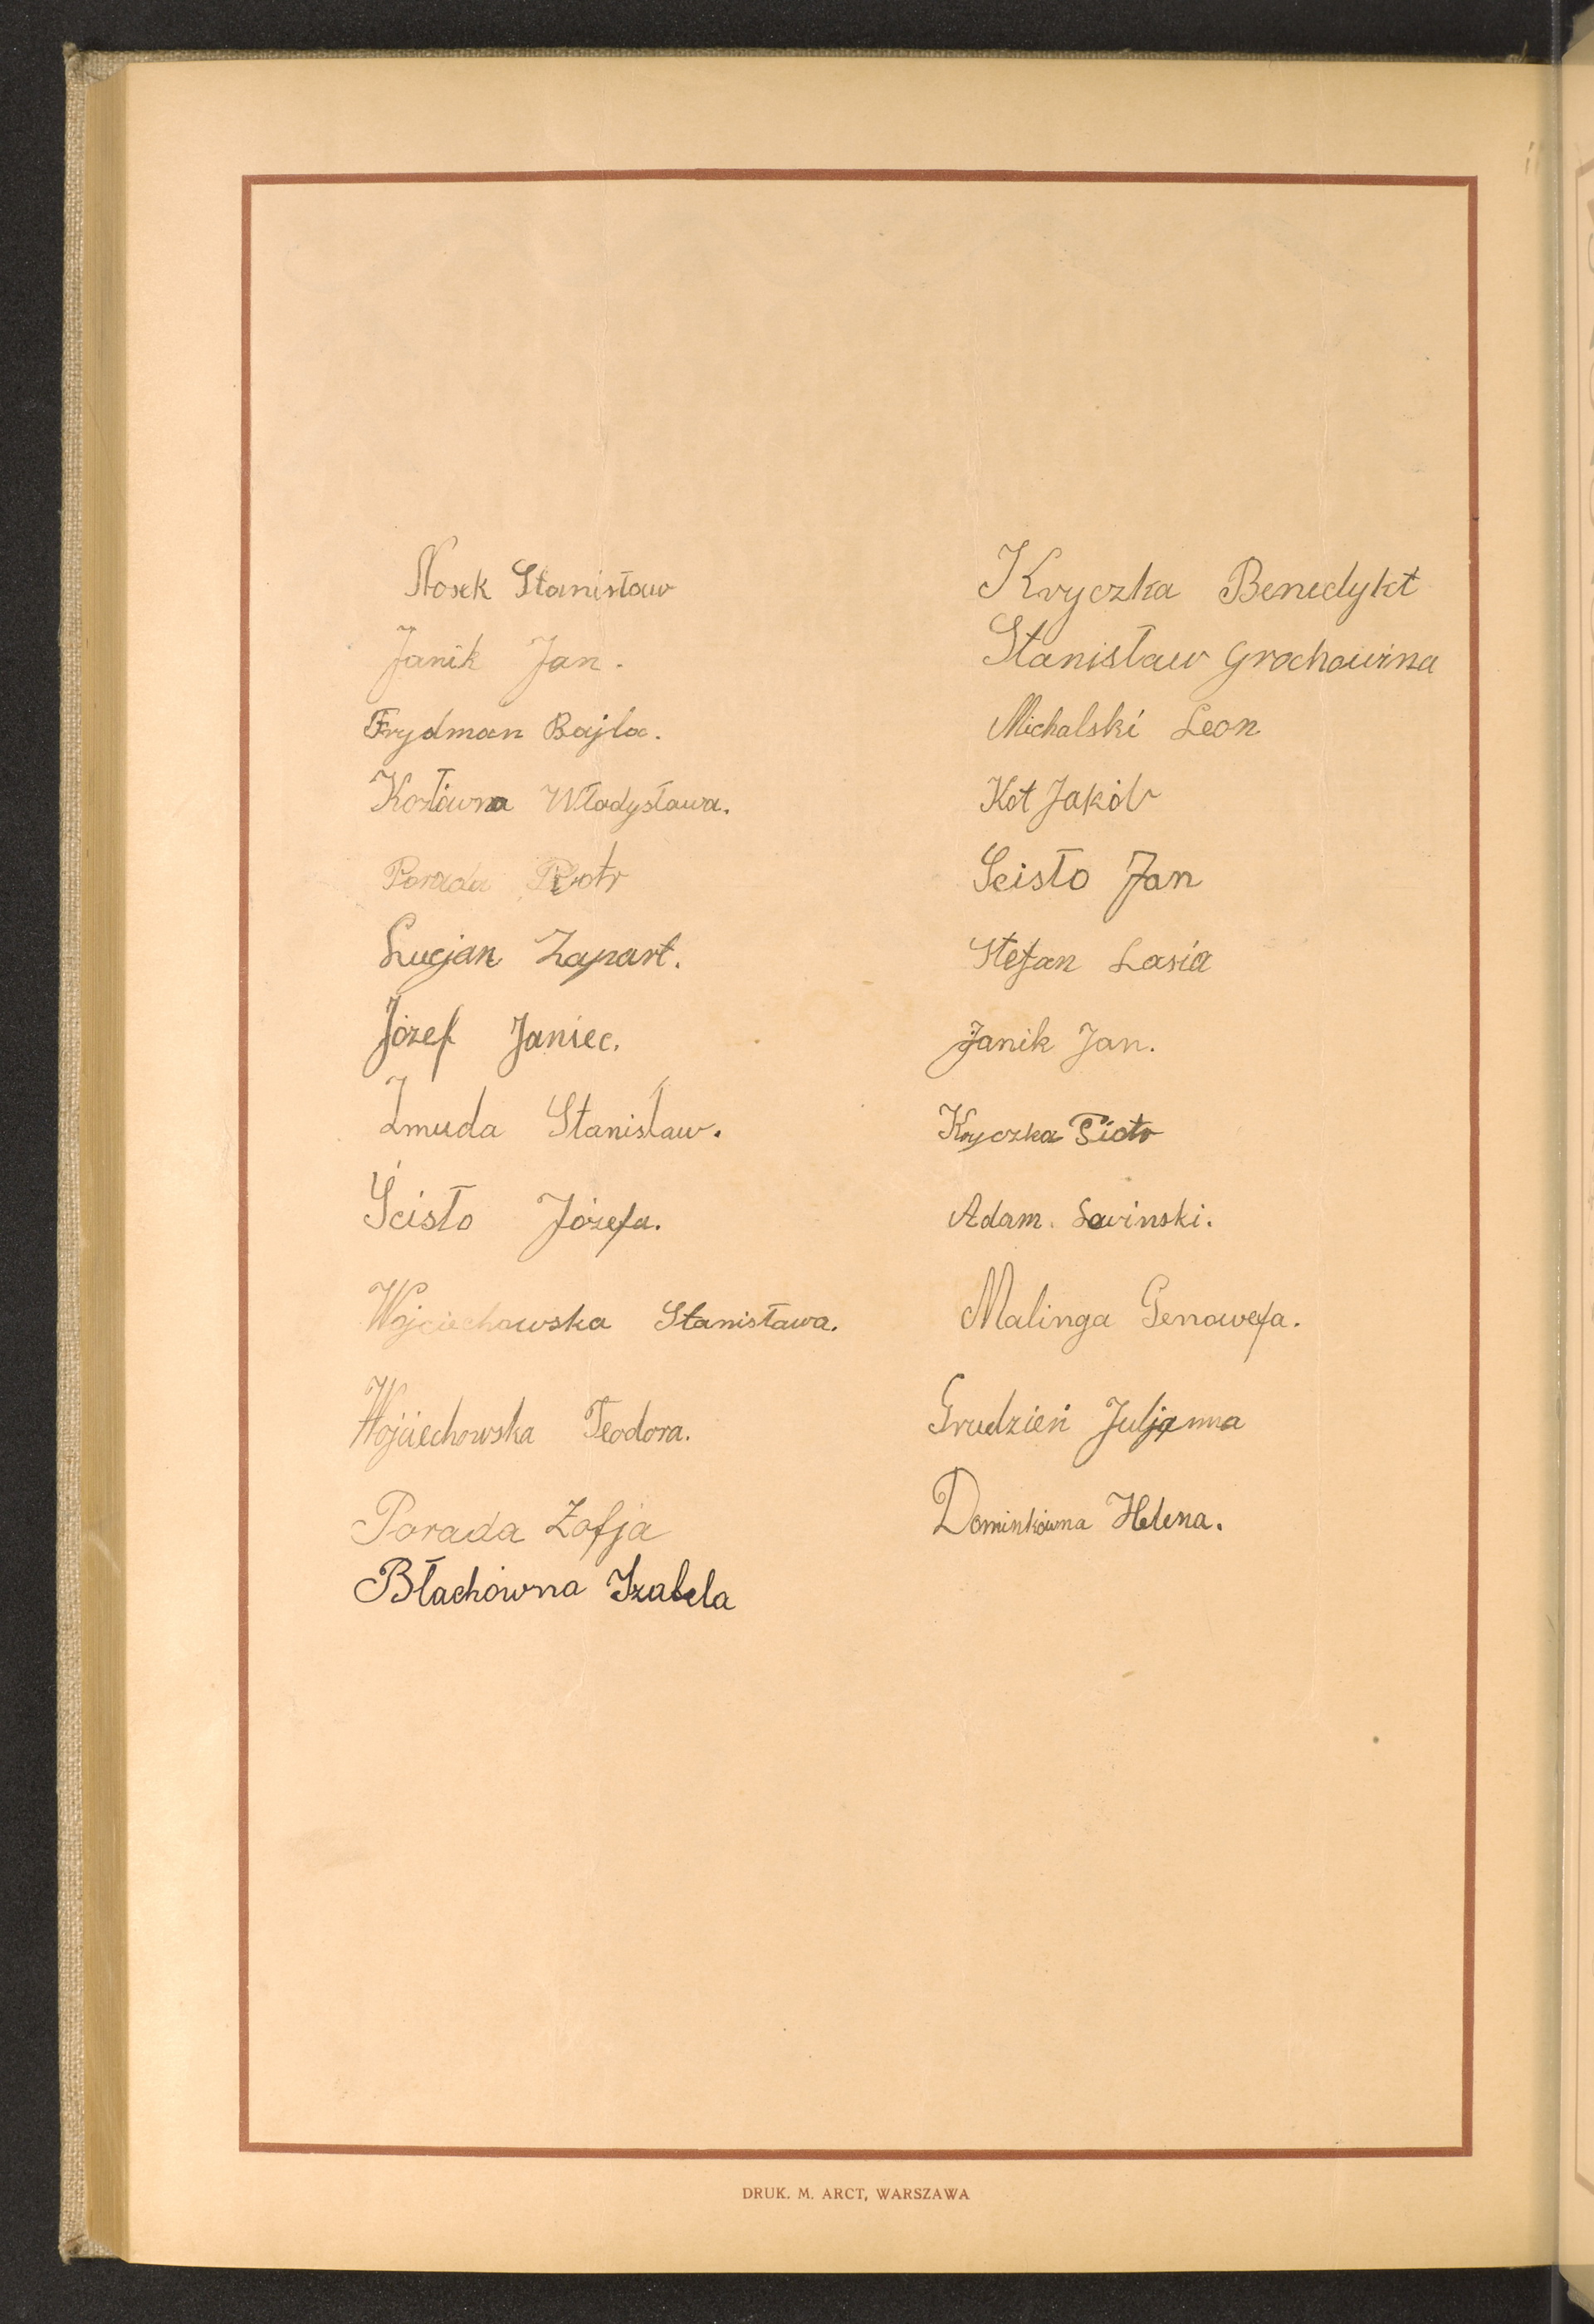 Nosek Stanisław
Janik Jan.
Frydman Bajla.
Kozłówna Władysława.
Porada Piotr
Lucjan Zapart.
Józef Janiec.
Żmuda Stanisław.
Ścisło Józefa.
Wojciechowska Stanisława.
Wojciechowska Teodora.
Porada Zofja
Błachówna Izabela
Kryczka Benedykt
Stanisław Grochowina
Michalski Leon
Kot Jakób
Scisło Jan
Stefan Lasia
Janik Jan.
Kryczka Piotr
Adam. Lavinski.
Malinga Genowefa.
Grudzień Juljanna
Dominkówna Helena.
DRUK. M. ARCT, WARSZAWA